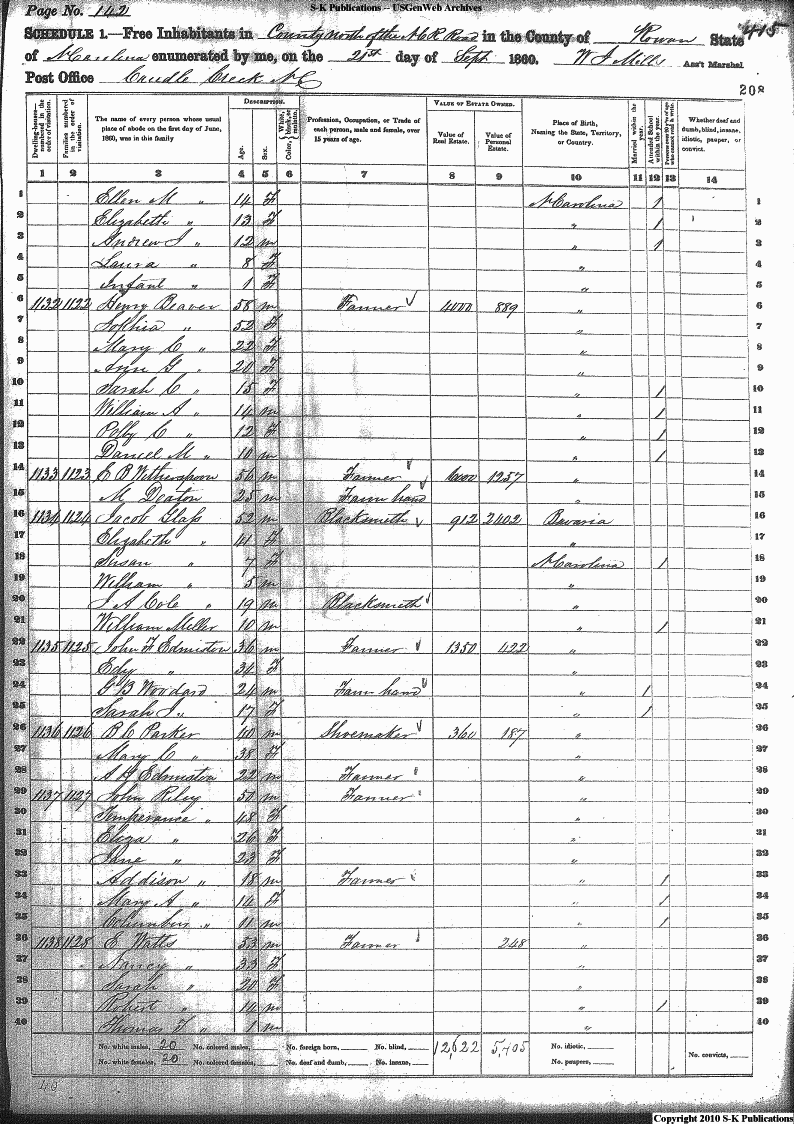 Page No. 142
S-K Publications -- USGenWeb Archives
SCHEDULE 1.—Free Inhabitants in County North of the N C R Road in the County of Rowan State 415
of N Carolina enumerated by me, on the 21st day of Sept 1860. W J Mills Ass't Marshal.
Post Office Caudle Creek N C
208
Dwelling-houses—numbered in the order of visitation. Families numbered in the order of visitation. The name of every person whose usual place of abode on the first day of June, 1860, was in this family. DESCRIPTION. Age. Sex. Color, White, black, or mulatto. Profession, Occupation, or Trade of each person, male and female, over 15 years of age. VALUE OF ESTATE OWNED. Value of Real Estate. Value of Personal Estate. Place of Birth, Naming the State, Territory, or Country. Married within the year. Attended School within the year. Persons over 20 y'rs of age who cannot read & write. Whether deaf and dumb, blind, insane, idiotic, pauper, or convict.
1 2 3 4 5 6 7 8 9 10 11 12 13 14
1 Ellen M " 14 F N Carolina 1 1
2 Elizabeth " 13 F " 1 2
3 Andrew J " 12 m " 1 3
4 Laura " 8 F " 4
5 Infant " 1 F " 5
6 1132 1122 Henry Beaver 58 m Farmer 4000 889 " 6
7 Sophia " 52 F " 7
8 Mary C " 22 F " 8
9 Ann G " 20 F " 9
10 Sarah C " 15 F " 1 10
11 William A " 14 m " 1 11
12 Polly C " 12 F " 1 12
13 Daniel M " 10 m " 1 13
14 1133 1123 E B Witherspoon 56 m Farmer 6000 1257 " 14
15 M Deaton 25 m Farm hand " 15
16 1134 1124 Jacob Glass 52 m Blacksmith 912 2402 Bavaria 16
17 Elizabeth " 41 F " 17
18 Susan " 7 F N Carolina 1 18
19 William " 5 m " 19
20 J A Cole " 19 m Blacksmith " 20
21 William Miller 10 m " 1 21
22 1135 1125 John F Edmiston 36 m Farmer 1350 422 " 22
23 Edy " 34 F " 23
24 G B Woodard 24 m Farm hand " 1 24
25 Sarah J " 17 F " 1 25
26 1136 1126 B C Parker 40 m Shoemaker 360 187 " 26
27 Mary C " 38 F " 27
28 A G Edmiston 22 m Farmer " 28
29 1137 1127 John Riley 50 m Farmer " 29
30 Temperance " 48 F " 30
31 Eliza " 26 F " 31
32 Jane " 23 F " 32
33 Addison " 18 m Farmer " 1 33
34 Mary A " 14 F " 1 34
35 Columbus " 11 m " 1 35
36 1138 1128 E Watts 53 m Farmer 248 " 36
37 Nancy " 33 F " 37
38 Sarah " 20 F " 38
39 Robert " 14 m " 1 39
40 Thomas F " 1 m " 40
No. white males, 20 No. colored males, No. foreign born, No. blind, 12,622 5,405 No. idiotic,
No. white females, 20 No. colored females, No. deaf and dumb, No. insane, No. paupers, No. convicts,
Copyright 2010 S-K Publications